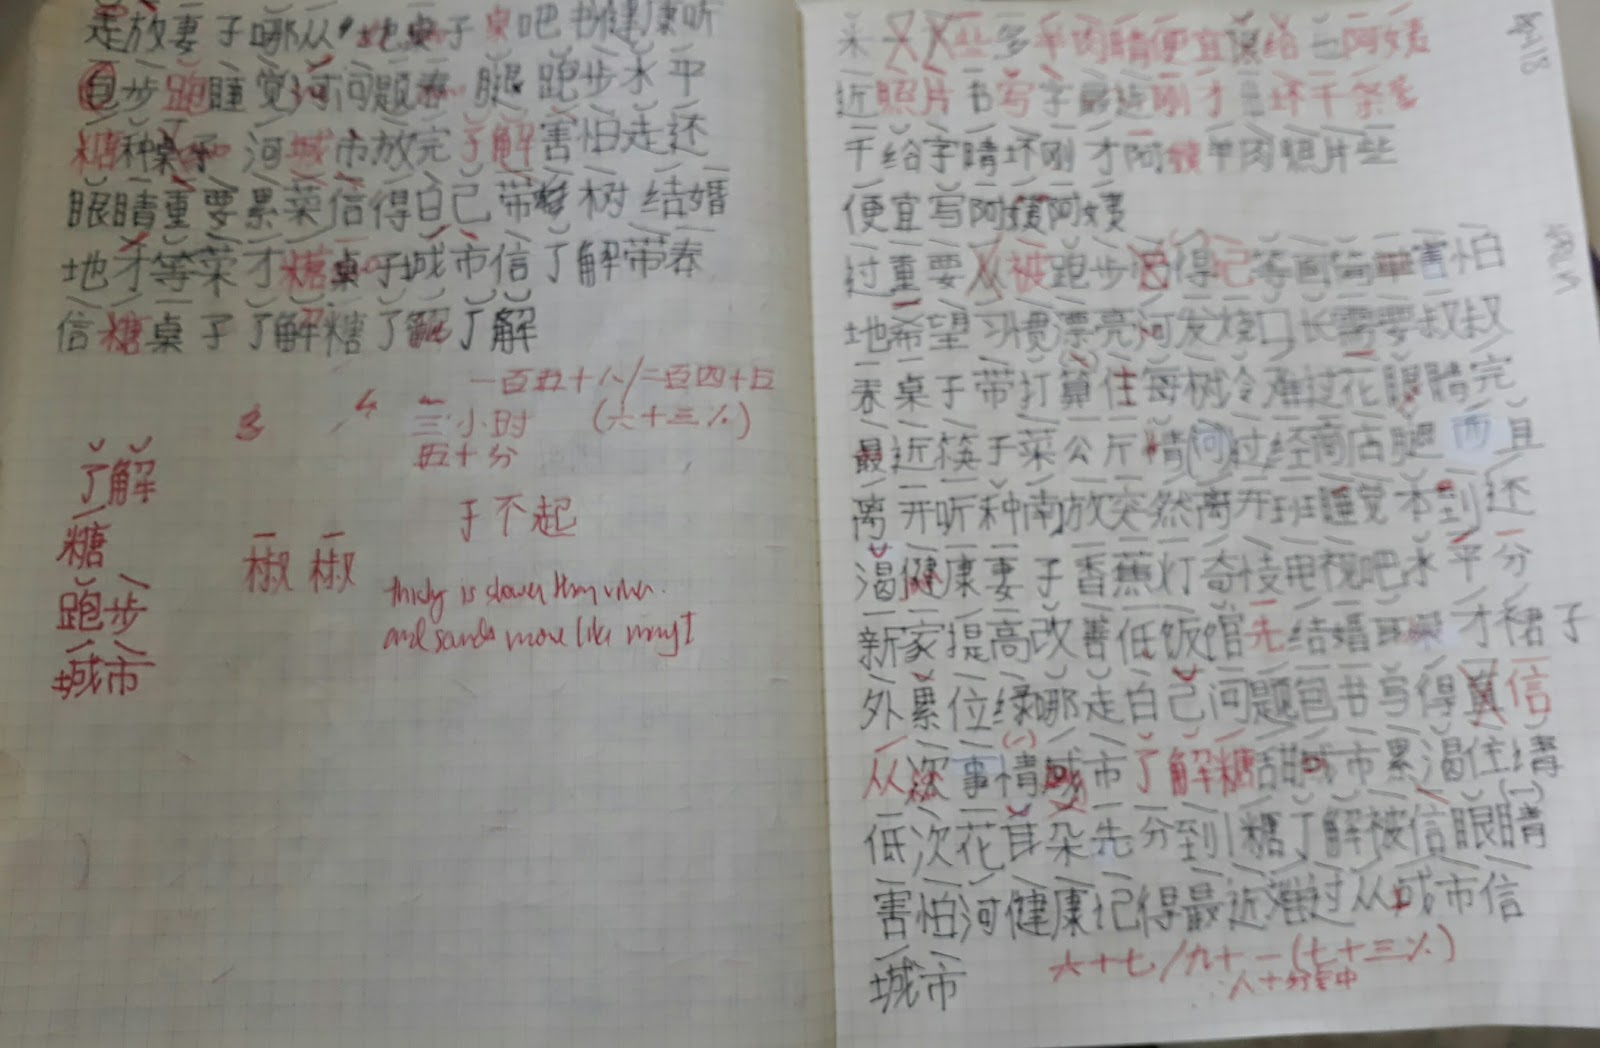 走放妻子哪从地桌子桌吧书健康听
包步跑睡觉河问题春腿跑步水平
糖种桌子河城市放完了解害怕走还
眼睛重要累菜信得自己带树结婚
地才等菜才糖桌子城市信了解带春
信糖桌子了解糖了解了解
一百五十八/二百四十五
3 4 三小时 (六十三%)
五十分
了解
糖
跑步
城市
于不起
椒椒
and sands more like
米些多羊肉睛便宜给阿姨
近照片书写字最近刚才坏千条
千给字睛坏刚才阿姨羊肉照片些
便宜写阿姨阿姨
过重要从被跑步得记等画简单害怕
地希望习惯漂亮河发烧口长需要叔叔
春桌子带打算住每树冷难过花眼睛完
最近筷子菜公斤情河过经商店腿而且
离开听种南放突然离开班睡觉不到还
渴健康妻子香蕉灯奇怪电视吧水平分
新家提高改善低饭馆先结婚耳朵才裙子
外累位绿哪走自己问题包书写得算信
从次事情城市了解糖甜城市累渴住情
低次花耳朵先分到糖了解被信眼睛
害怕河健康记得最近难过从城市信
城市
六十七/九十一(七十三%)
八十分